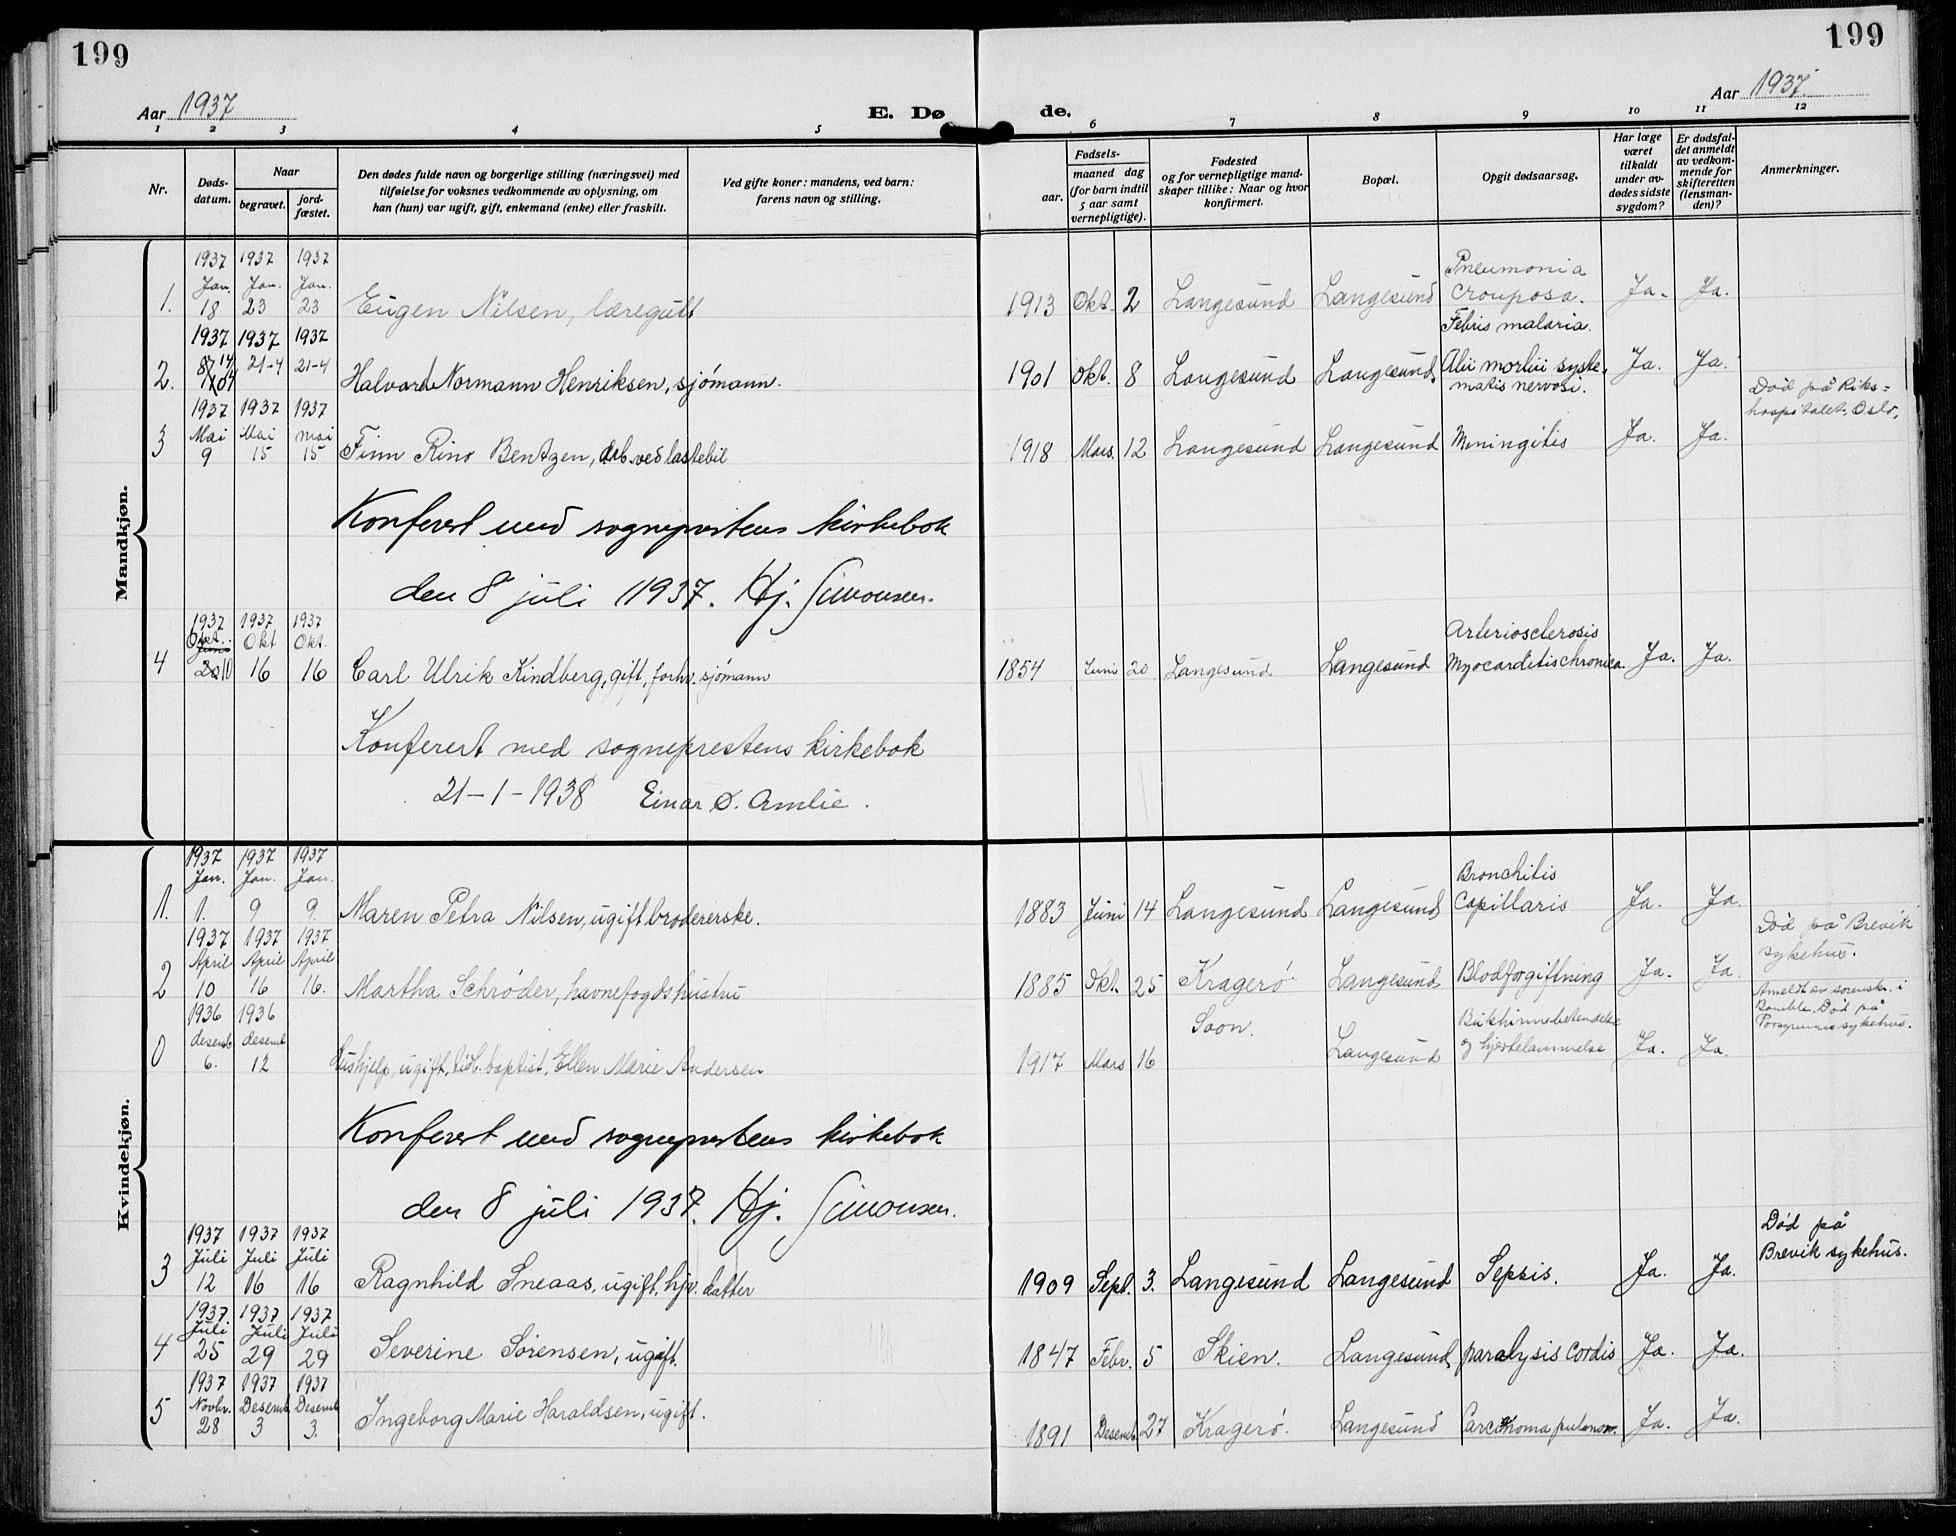 199
199
Aar 1937
E. Dø
de.
Aar 1937.
1 2 3 4 5 6 7 8 9 10 11 12
Nr.
Døds-
datum.
Naar
begravet.
jord-
fæstet.
Den dødes fulde navn og borgerlige stilling (næringsvei) med
tilføielse for voksnes vedkommende av oplysning, om
han (hun) var ugift, gift, enkemand (enke) eller fraskilt.
Ved gifte koner: mandens, ved barn:
farens navn og stilling.
Fødsels-
aar.
maaned dag
(for barn indtil
5 aar samt
vernepligtige).
Fødested
og for vernepligtige mand-
skaper tillike: Naar og hvor
konfirmert.
Bopæl.
Opgit dødsaarsag.
Har læge
været
tilkaldt
under av-
dødes sidste
sygdom?
Er dødsfal-
det anmeldt
av vedkom-
mende for
skifteretten
(lensman-
den)?
Anmerkninger.
Mandkjøn.
1937 1937 1937
Jan. Jan. Jan.
1. 18 23 23 Eugen Nilsen, læregutt 1913 Okt. 2 Langesund Langesund Pneumonia
crouposa. Ja. Ja.
1937 1937 1937
2. 14/4 21-4 21-4 Halvard Normann Henriksen, sjømann. 1901 Okt. 8 Langesund Langesund. Febris malaria.
Alii morbii syste-
matis nervosi. Ja. Ja.
Død på Riks=
hospitalet, Oslo.
1937 1937 1937
Mai Mai mai
3 9 15 15 Finn Rino Bentzen, arb. ved lastebil 1918 Mars. 12 Langesund Langesund Meningitis Ja. Ja.
Konferert med sogneprestens kirkebok
den 8 juli 1937. Hj. Simonsen.
1937 1937 1937
Okt. Okt Okt.
4 10 16 16 Carl Ulrik Kindberg, gift, forhv. sjømann 1854 Juni 20 Langesund Langesund Arteriosclerosis
Myocarditis chronica. Ja. Ja.
Konferert med sogneprestens kirkebok
21-1-1938 Einar Ø. Amlie.
Kvindekjøn.
1937 1937 1937
Jan. Jan. Jan.
1. 1. 9 9. Maren Petra Nilsen, ugift brodererske. 1883 Juni 14 Langesund Langesund Bronchitis
Capillaris Ja. Ja.
1937 1937 1937
April April April
2 10 16 16. Martha Schrøder, havnefogdshustru 1885 Okt. 25 Kragerø Langesund Blodforgiftning Ja. Ja.
Død på Brevik
sykehus.
1936 1936
desemb desemb
0 6. 12 Hushjelp, ugift, tidl. baptist, Ellen Marie Andersen 1917 Mars 16 Soon. Langesund Bukhinnebetendelse
og hjertelammelse Ja. Ja.
Anmeldt av sorenskr. i
Bamble. Død på
Porsgrunns sykehus.
Konferert med sogneprestens kirkebok
den 8 juli 1937. Hj. Simonsen.
1937 1937 1937
Juli Juli Juli
3 12 16 16 Ragnhild Sneaas, ugift, hjv. datter 1909 Sept. 3. Langesund Langesund Sepsis. Ja. Ja.
Død på
Brevik sykehus.
1937. 1937 1937
Juli Juli Juli
4 25 29 29 Severine Sørensen, ugift. 1847 Febr. 5 Skien. Langesund paralysis cordis Ja. Ja.
1937 1937 1937
Novbr. Desemb. Desemb
5 28 3 3. Ingeborg Marie Haraldsen, ugift. 1891 Desemb. 27 Kragerø. Langesund Carcinoma pulmon. Ja. Ja.